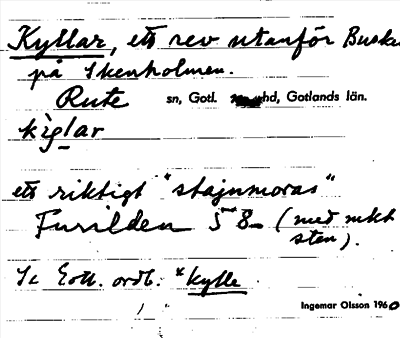 Kyllar, ett rev utanför Buske
på Skenholmen.
Rute sn, Gotl. hd, Gotlands län.
kìglar
ett riktigt "stajnmoras"
Furilden 5 8 (med mkt
sten).
Se Gotl. ordb. *kylle
Ingemar Olsson 1960